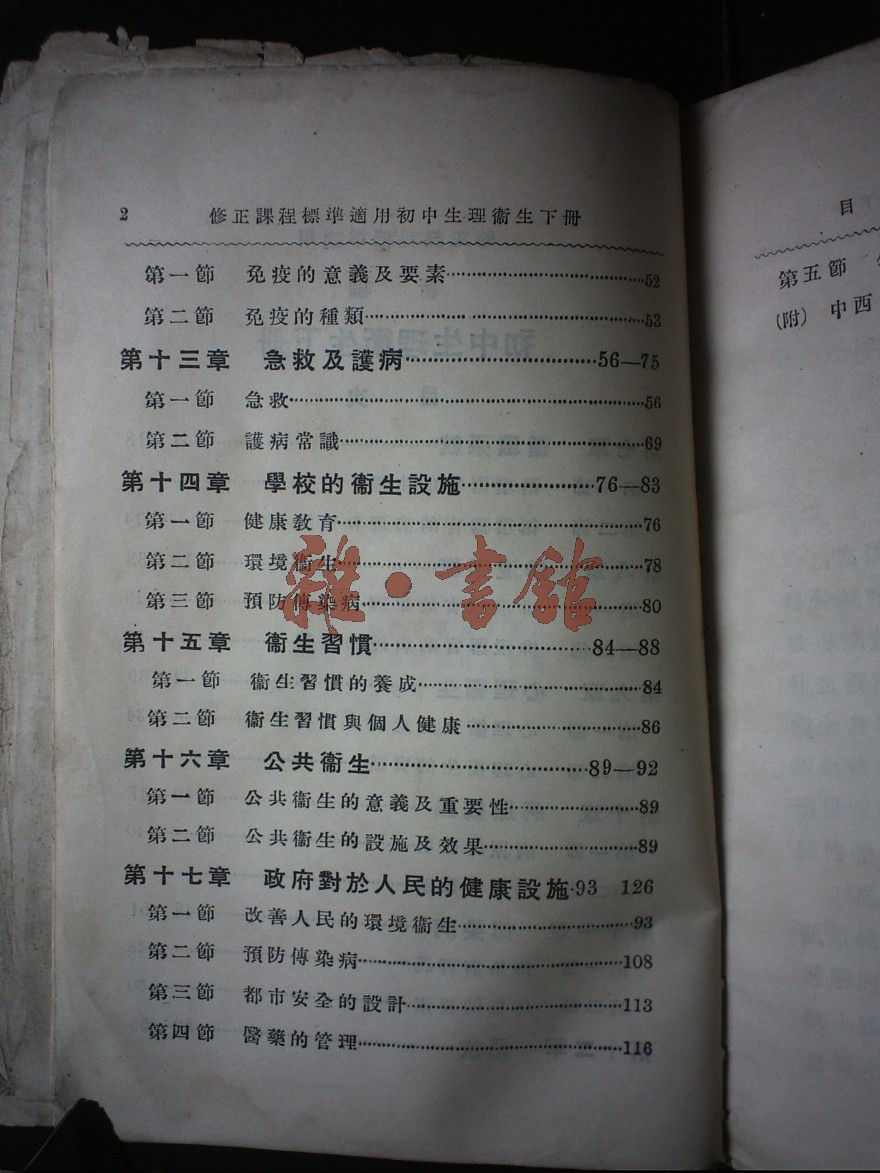 2 修正課程標準適用初中生理衞生下册
第一節 免疫的意義及要素……52
第二節 免疫的種類……53
第十三章 急救及護病……56—75
第一節 急救……56
第二節 護病常識……69
第十四章 學校的衞生設施……76—83
第一節 健康敎育……76
第二節 環境衞生……78
第三節 預防傳染病……80
第十五章 衞生習慣……84—88
第一節 衞生習慣的養成……84
第二節 衞生習慣與個人健康……86
第十六章 公共衞生……89—92
第一節 公共衞生的意義及重要性……89
第二節 公共衞生的設施及效果……89
第十七章 政府對於人民的健康設施·93 126
第一節 改善人民的環境衞生……93
第二節 預防傳染病……108
第三節 都市安全的設計……113
第四節 醫藥的管理……116
雜·書館
目
第五節
(附) 中西